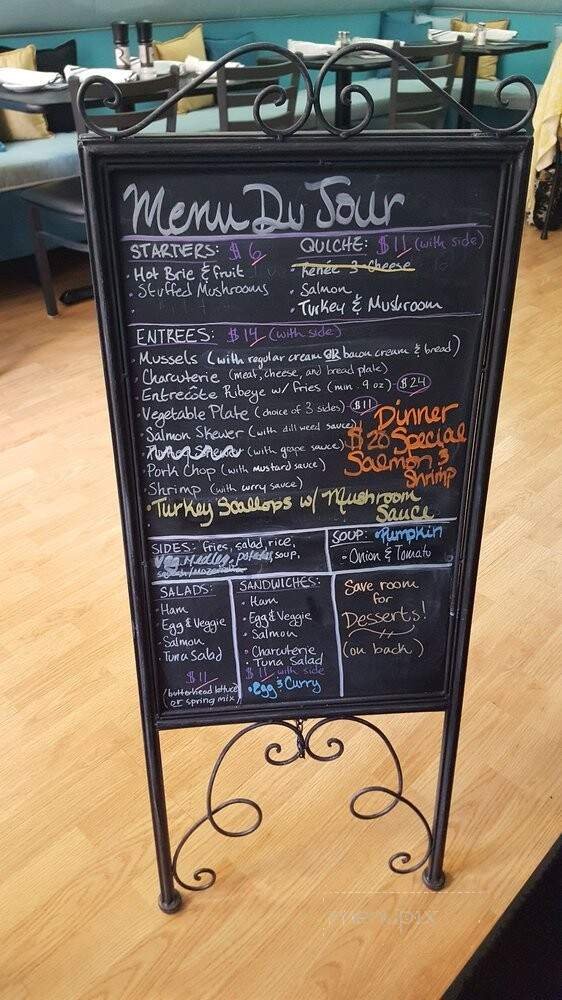 Menu Du Jour
STARTERS: $6
• Hot Brie & fruit
• Stuffed Mushrooms
QUICHE: $11 (with side)
• Renée 3 Cheese
• Salmon
• Turkey & Mushroom
ENTREES: $14 (with side)
• Mussels (with regular cream OR bacon cream & bread)
• Charcuterie (meat, cheese, and bread plate)
• Entrecôte Ribeye w/ fries (min. 9 oz) $24
• Vegetable Plate (choice of 3 sides) $11
• Salmon Skewer (with dill weed sauce)
(with grape sauce)
• Pork Chop (with mustard sauce)
• Shrimp (with curry sauce)
• Turkey Scallops w/ Mushroom
Sauce
Dinner
$20 Special
Salmon &
Shrimp
SIDES: fries, salad, rice,
Veg Medley, potatoes, soup,
SOUP: • Pumpkin
• Onion & Tomato
SALADS:
• Ham
• Egg & Veggie
• Salmon
• Tuna Salad
$11
(butterhead lettuce
or spring mix)
SANDWICHES:
• Ham
• Egg & Veggie
• Salmon
• Charcuterie
• Tuna Salad
$11 with side
• Egg & Curry
Save room
for
Desserts!
(on back)
menupix